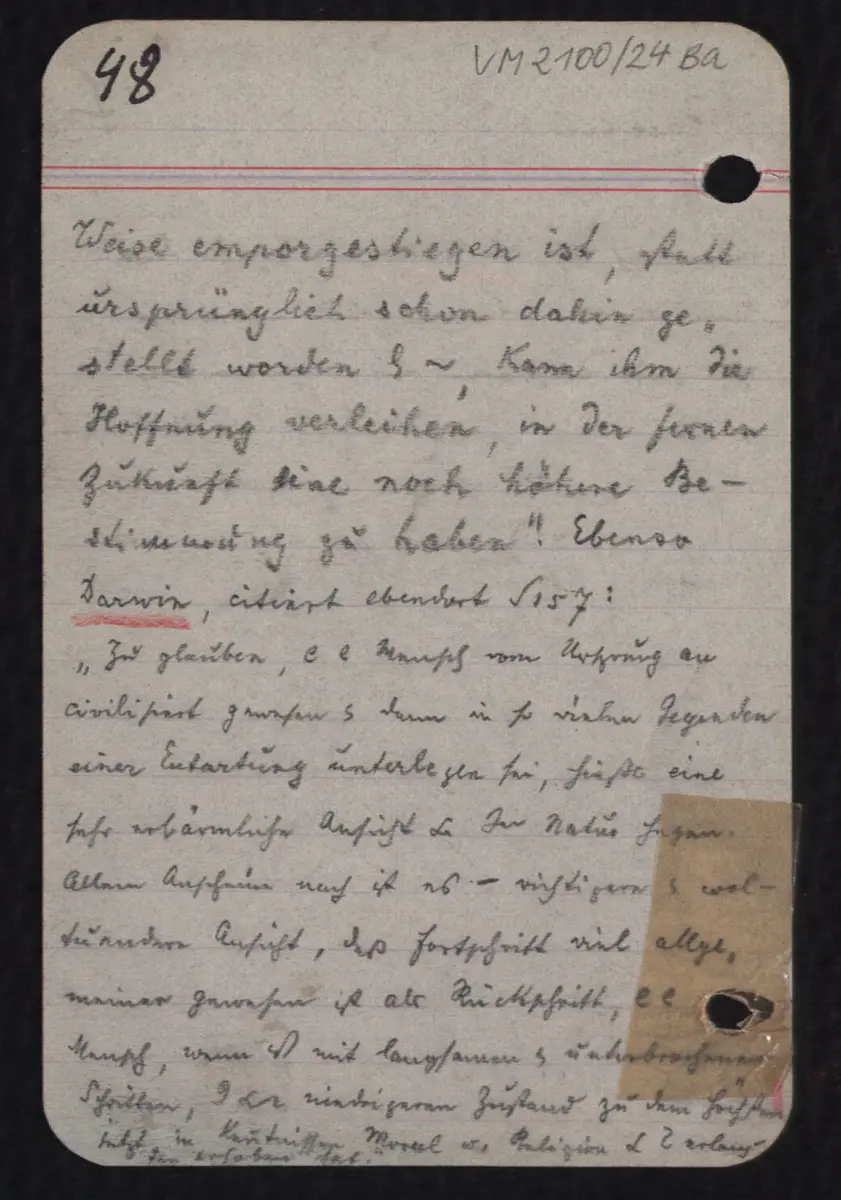 48
VM 2100/24 Ba
Weise emporgestiegen ist, statt
ursprünglich schon dahin ge„
stellt worden ~, kann ihm die
Hoffnung verleihen, in der fernen
Zukunft eine noch höhere Be–
stimmung zu haben". Ebenso
Darwin, citiert ebendort S 157:
„Zu glauben, Mensch vom Ursprung an
civilisiert gewesen & dann in so vielen Gegenden
einer Entartung unterlegen sei, hieße eine
sehr erbärmliche Ansicht der Natur hegen.
Allem Anscheine nach ist es – richtigere & wol–
tuendere Ansicht, daß Fortschritt viel allge„
meiner gewesen ist als Rückschritt,
Mensch, wenn mit langsamen & unterbrochenen
Schritten, niedrigeren Zustand zu dem höchsten
jetzt in Kentnissen Moral u. Religion erlang–
ten erhoben hat."